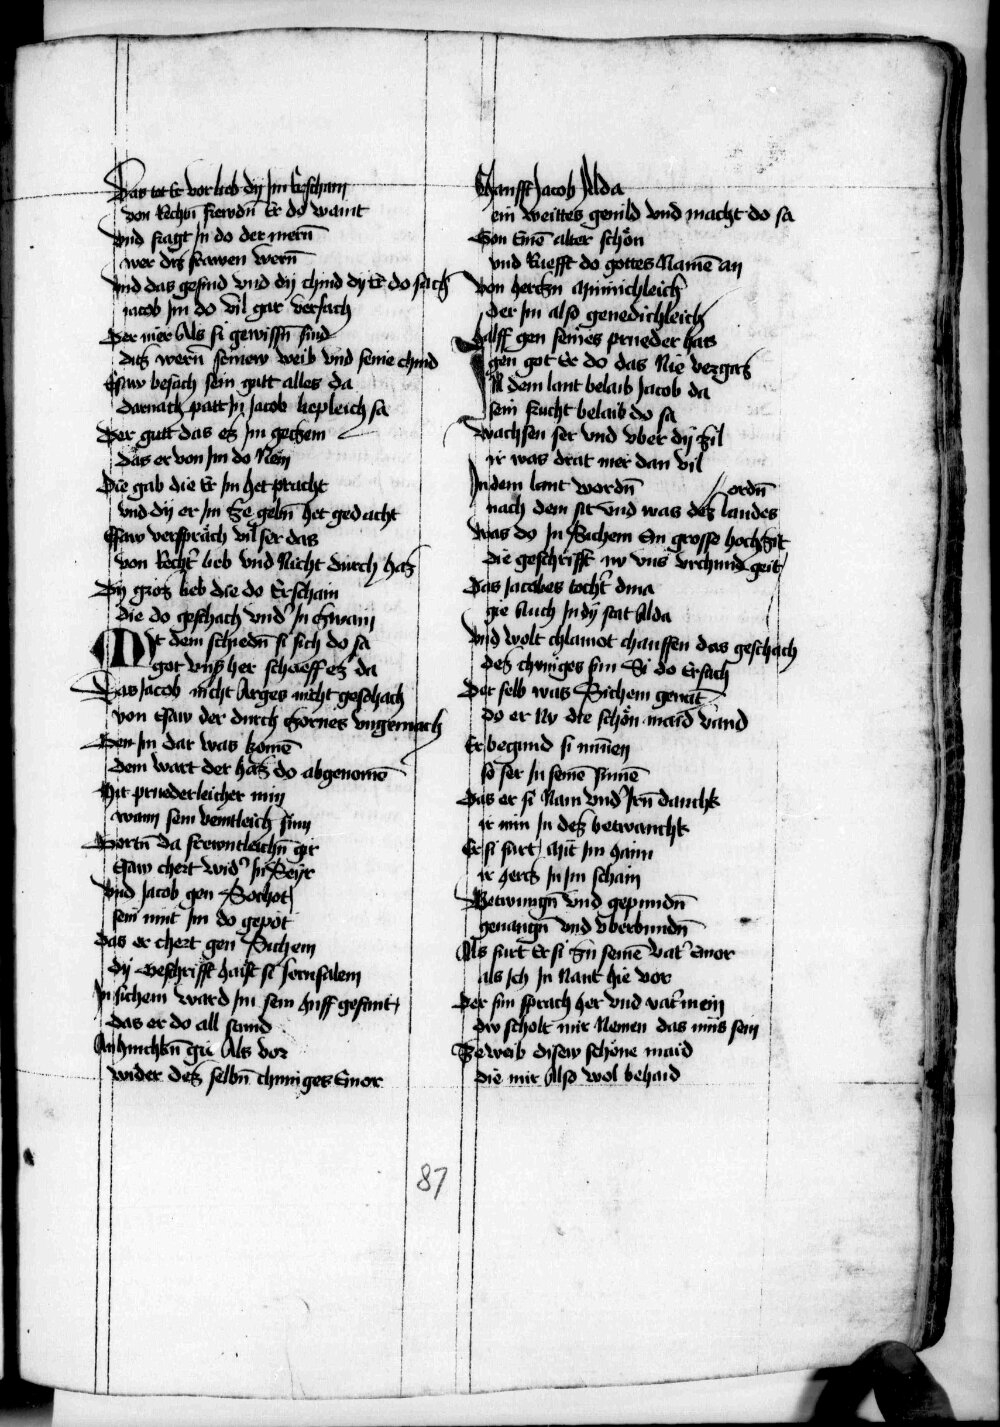 Das tet Er vor lieb dy Im Erschain
von Rechtn̄ frewdn̄ Er do waint
vnd fragt In do der mern̄
wer dis frawen wern̄
vnd das gesind vnd dy chind dy Er do sach
Jacob Im do vil gar versach
Der mer Als si gewissn̄ sind
das wern̄ seinew weib vnd seine chind
Esaw besach sein gutt alles da
darnach patt In Jacob liepleich sa
Der gutt das es Im geczem
das er von Im do Nem
Die gab die Er Im het pracht
vnd dy er Im ze gebn̄ het gedacht
Esaw versprach vil ser das
von Recht lieb vnd Nicht durch has
Dy gros lieb die do Erschain
die do geschach vnd In zwain
Mit dem schiedn̄ si sich do sa
got vnser her schueff es da
Das Jacob nicht Arges nicht geschach
von Esaw der durch zornes vngemach
Den Im dar was komē
dem wart der has do abgenomē
Mit pruederleicher min
wann sein veintleich sinn
Portn̄ da frewntleichn̄ gir
Esaw chert wid In Seyr
vnd Jacob gen Sochot
sein mut Im do gepot
Das er chert gen Sichem
dy Geschrifft haist si Jerusalem
In sichem ward Im sein huff gesunt
das er do all stund
An hinchkn̄ gie Als vor
wider des selbn̄ chuniges Emor
Chaufft Jacob Alda
ein weittes gevild vnd macht do sa
Gon Emē alter schön
vnd Ruefft do gottes Namē an
von herczn Aininchleich
der Im also genedichleich
halff gen seines prueder has
gen got Er do das Nie vergas
In dem lant belaib Jacob da
sein frucht belaib do sa
wachsen ser vnd vber dy zil
ir was drat mer dan vil
In dem lant wordn̄
nach dem sit vnd was des landes ordn̄
was do In Sichem Ein grosse hochzit
die geschrifft nv vns vrchund geit
Das Jacobes tocht dina
gie Auch In dy stat Alda
vnd wolt chlainot chauffen das geschach
des chuniges sun Si do Ersach
Der selb was Sichem genāt
do er Nv die schön maid vand
Er begund si minnen
so ser In seinē sinnē
Das er si Nam vnd Irn̄ danchk
ir min In des betwanchk
Er si furt mit Im haim
ir hercz In Im schain
Betwungn̄ vnd gepundn̄
geuangn̄ vnd vberwundn̄
Als furt Er si zu seinē vat Emor
als Ich In Nant hie vor
Der sun sprach her vnd vat mein
dw scholt mir Nemen das mus sein
Ze weib disew schöne maid
die mir Also wol behaid
87